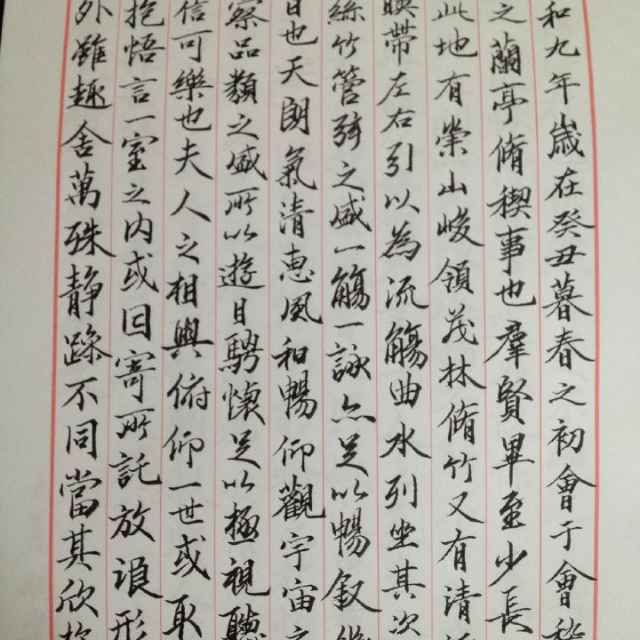 和九年歲在癸丑暮春之初會于會稽
之蘭亭脩稧事也羣賢畢至少長
此地有崇山峻領茂林脩竹又有清
映帶左右引以為流觴曲水列坐其次
絲竹管弦之盛一觴一詠亦足以暢叙幽
日也天朗氣清惠風和暢仰觀宇宙之
察品類之盛所以遊目騁懷足以極視聽
信可樂也夫人之相與俯仰一世或取
抱悟言一室之内或因寄所託放浪形
外雖趣舍萬殊静躁不同當其欣